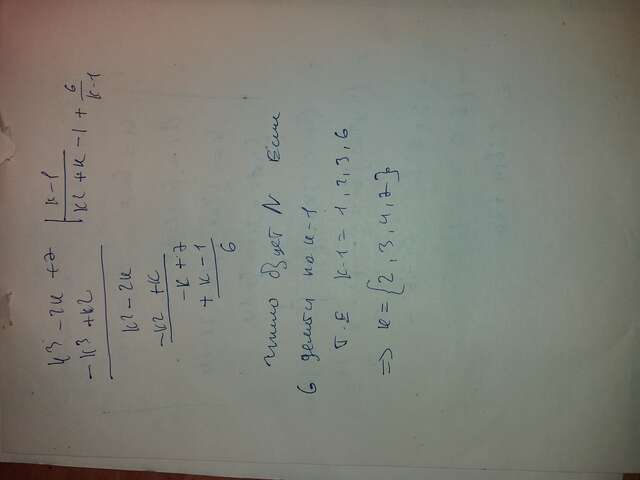 k³ - 2k + 7 | k - 1
-k³ + k² k² + k - 1 + 6/(k-1)
k² - 2k
-k² + k
-k + 7
+k - 1
6
Число будет N Если
6 делится на k-1
Т.Е k-1 = 1, 2, 3, 6
=> k = {2, 3, 4, 7}